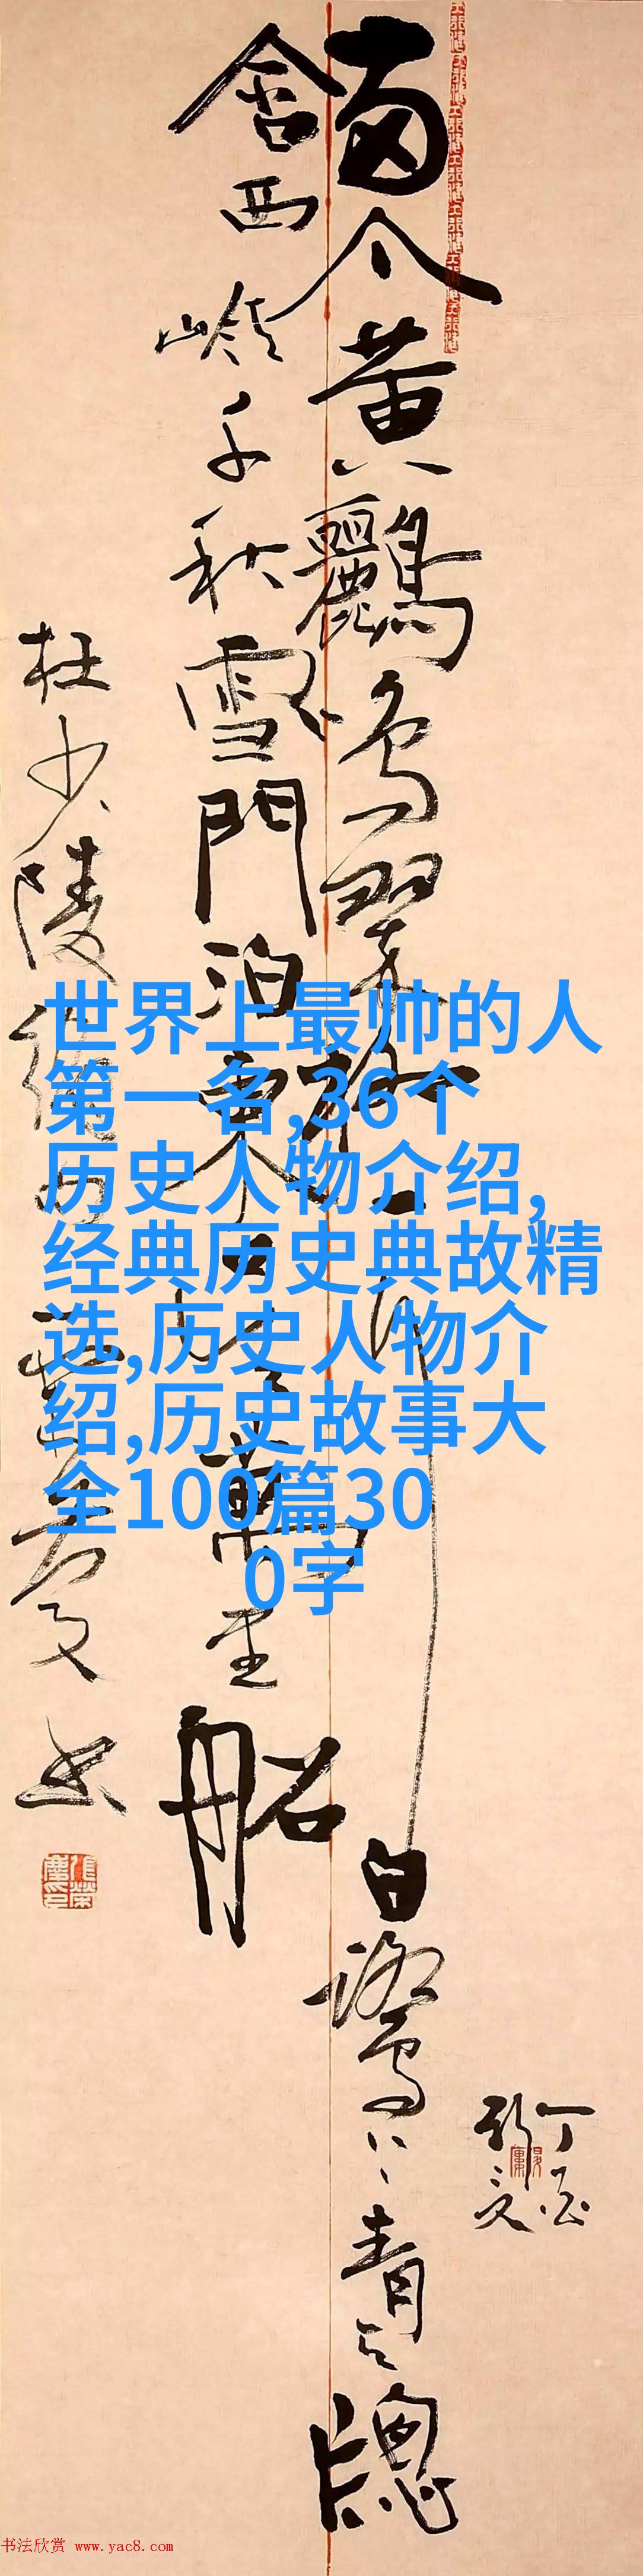 兩个黃鸝鳴翠柳一行白鷺上青天牕
含西嶺千秋雪門泊東吳萬里船
杜少陵絕句
世界上最帅的人
第一名,36个
历史人物介绍,
经典历史典故精
选,历史人物介
绍,历史故事大
全100篇30
0字
书法欣赏 www.yac8.com